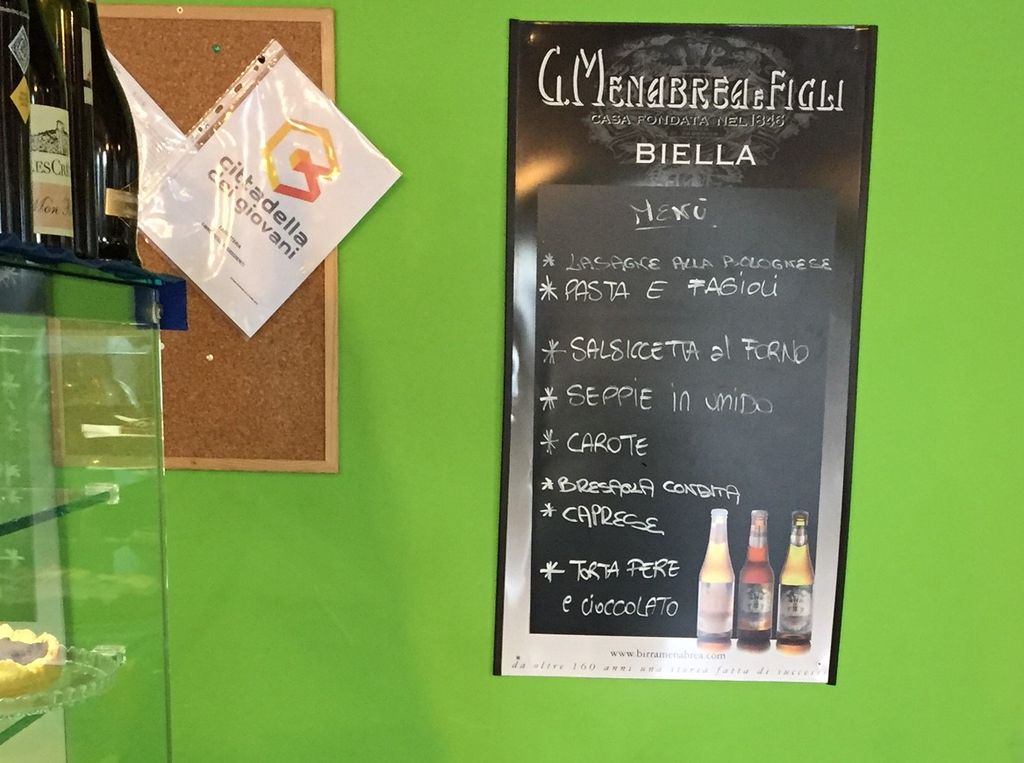 G. MENABREA E FIGLI
CASA FONDATA NEL 1846
BIELLA
MENÙ
* LASAGNE ALLA BOLOGNESE
* PASTA E FAGIOLI
* SALSICCETTA al FORNO
* SEPPIE in umido
* CAROTE
* BRESAOLA CONDITA
* CAPRESE
* TORTA PERE
e CIOCCOLATO
www.birramenabrea.com
da oltre 160 anni una storia fatta di successi
cittadella
dei giovani